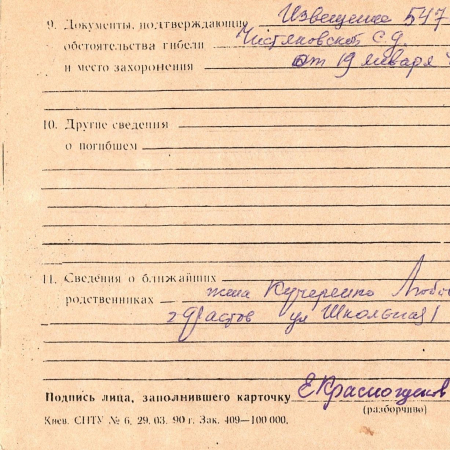 9. Документы, подтверждающие Извещение 547
обстоятельства гибели Чистяковской с.д.
и место захоронения от 19 января
10. Другие сведения
о погибшем
11. Сведения о ближайших
родственниках жена Кучеренко Любо
ул Школьная 1
Подпись лица, заполнившего карточку
(разборчиво)
Киев. СПТУ № 6, 29. 03. 90 г. Зак. 409—100 000.